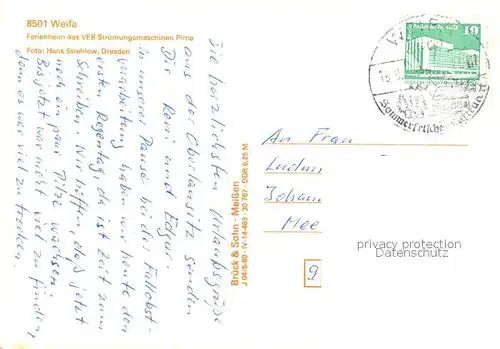 8501 Weifa
Ferienheim des VEB Strömungsmaschinen Pirna
Foto: Hans Strehlow, Dresden
Die herzlichsten Urlaubsgrüße
aus der Oberlausitz senden
Dir Reni und Edgar.
In unserer Pause bei der Fallobst-
verarbeitung haben wir heute den
ersten Regentag, da ist Zeit zum
Schreiben. Wir hoffen, daß jetzt
noch ein paar Pilze wachsen.
Bis jetzt war nicht viel zu finden,
denn es war viel zu trocken.
Brück & Sohn · Meißen
J 04/5-89 · IV-14-483 · 30 767 · DDR 0,25 M
10
Sommerfrische
An Frau
Mee
privacy protection
Datenschutz
9